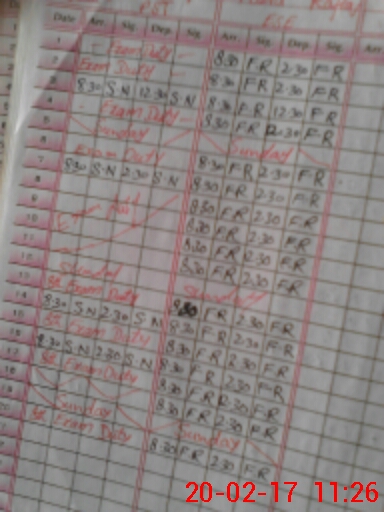 PST
Date Arr. Sig. Dep. Sig. Arr. Sig. Dep. Sig.
1 Exam Duty 8:30 F.R 2:30 F.R
2 Exam Duty 8:30 F.R 2:30 F.R
3 8:30 S.N 12:30 S.N 8:30 F.R 12:30 F.R
4 Exam Duty 8:30 F.R 12:30 F.R
5 Sunday Sunday
6 Exam Duty 8:30 F.R 2:30 F.R
7 8:30 S.N 2:30 S.N 8:30 F.R 2:30 F.R
8 8:30 F.R 2:30 F.R
9 8:30 F.R 2:30 F.R
10 8:30 F.R 2:30 F.R
11 8:30 F.R 2:30 F.R
12 Sunday Sunday
13 Exam Duty 8:30 F.R 2:30 F.R
14 8:30 S.N 2:30 S.N 8:30 F.R 2:30 F.R
15 Exam Duty 8:30 F.R 2:30 F.R
16 8:30 S.N 2:30 S.N 8:30 F.R 2:30 F.R
17 Exam Duty 8:30 F.R 2:30 F.R
18
19 Sunday Sunday
20 Exam Duty 8:30 F.R 2:30 F.R
20-02-17 11:26